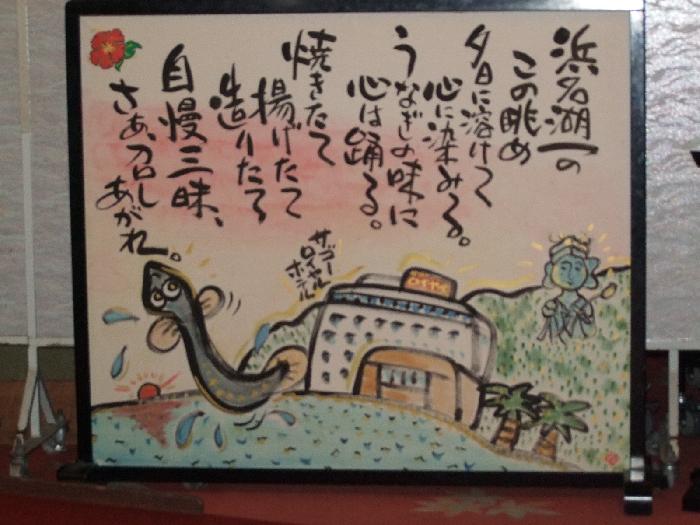 浜名湖一の
この眺め
夕日に溶けて
心に染みる。
うなぎの味に
心は踊る。
焼きたて
揚げたて
造りたて
自慢三昧、
さあ、召し
あがれ。
ザゴー
ロイヤル
ホテル